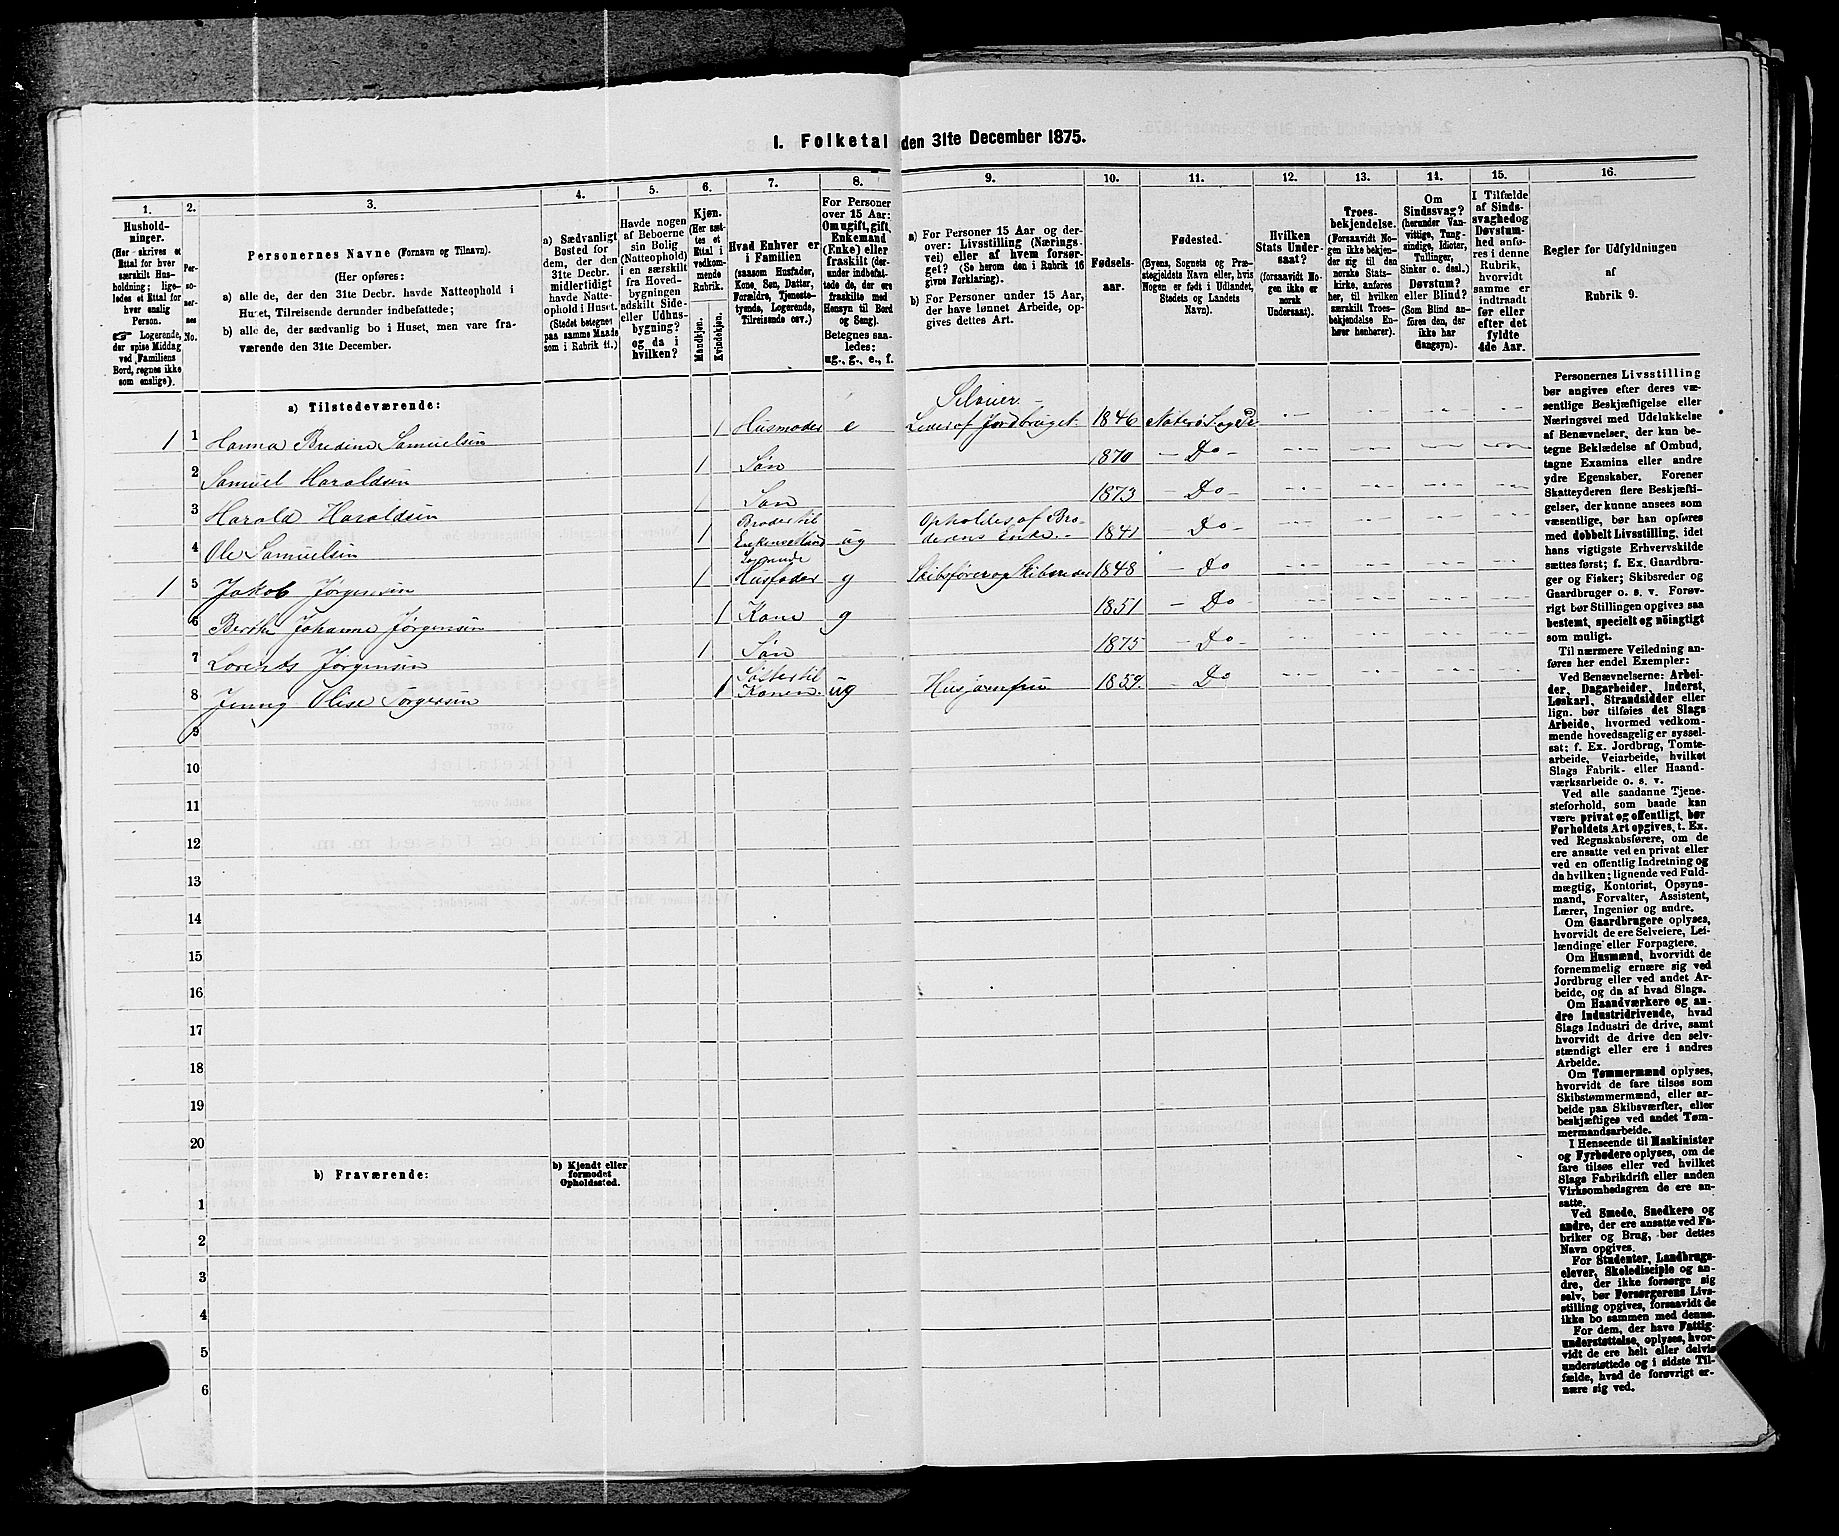 I. Folketal den 31te December 1875.
1.
Hushold-
ninger.
(Her skrives et
Ettal for hver
særskilt Hus-
holdning; lige-
ledes et Ettal for
hver enslig
Person.
Logerende,
der spise Middag
ved Familiens
Bord, regnes ikke
som enslige).
2.
Per-
so-
ner-
nes
No.
3.
Personernes Navne (Fornavn og Tilnavn).
(Her opføres:
a) alle de, der den 31te Decbr. havde Natteophold i
Huset, Tilreisende derunder indbefattede;
b) alle de, der sædvanlig bo i Huset, men vare fra-
værende den 31te December.
4.
a) Sædvanligt
Bosted for
dem, der den
31te Decbr.
midlertidigt
havde Natte-
ophold i Huset.
(Stedet betegnet
paa samme Maade
som i Rubrik 11.)
5.
Havde nogen
af Beboerne
sin Bolig
(Natteophold)
i en særskilt
fra Hoved-
bygningen
adskilt Side-
eller Udhus-
bygning?
og da i
hvilken?
6.
Kjøn.
(Her sæt-
tes et
Ettal i
vedkom-
mende
Rubrik.
Mandkjøn.
Kvindekjøn.
7.
Hvad Enhver er
i Familien
(saasom Husfader,
Kone, Søn, Datter,
Forældre, Tjeneste-
tyende, Logerende,
Tilreisende osv.)
8.
For Personer
over 15 Aar:
Om ugift, gift,
Enkemand
(Enke) eller
fraskilt (der-
under indbefat-
tede de, der ere
fraskilte med
Hensyn til Bord
og Seng).
Betegnes saa-
ledes:
ug., g., e., f.
9.
a) For Personer 15 Aar og der-
over: Livsstilling (Nærings-
vei) eller af hvem forsør-
get? (Se herom den i Rubrik 16
givne Forklaring).
b) For Personer under 15 Aar,
der have lønnet Arbeide, op-
gives dettes Art.
10.
Fødsels-
aar.
11.
Fødested.
(Byens, Sognets og Præ-
stegjeldets Navn eller, hvis
Nogen er født i Udlandet,
Stedets og Landets
Navn).
12.
Hvilken
Stats Under-
saat?
(forsaavidt No-
gen ikke er
norsk
Undersaat).
13.
Troes-
bekjendelse.
(Forsaavidt No-
gen ikke bekjen-
der sig til den
norske Stats-
kirke, anføres
her, til hvilken
særskilt Troes-
bekjendelse En-
hver henhører).
14.
Om
Sindssvag?
(herunder Van-
vittige, Tung-
sindige, Idioter,
Tullinger,
Sinker o. desl.)
Døvstum?
eller Blind?
(Som Blind an-
føres den, der
ikke har
Gangsyn).
15.
I Tilfælde
af Sinds-
svaghed og
Døvstum-
hed anfø-
res i denne
Rubrik,
hvorvidt
samme er
indtraadt
før eller
efter det
fyldte
4de Aar.
16.
Regler for Udfyldningen
af
Rubrik 9.
a) Tilstedeværende:
1 1 Hanna Bredine Samuelsen 1 Husmoder e Selveier - Leder af Jordbruget. 1846 Nøterø S. og Pr
2 Samuel Haraldsen 1 Søn 1870 - Do -
3 Harald Haraldsen 1 Søn 1873 - Do -
4 Ole Samuelsen 1 Broder til Enkens Mand Logerende ug Opholdes af Bro- derens Enke. - 1841 - Do -
1 5 Jakob Jørgensen 1 Husfader g Skibsfører og Skibsreder 1848 - Do
6 Berthe Johanne Jørgensen 1 Kone g 1851 - Do
7 Lorents Jørgensen 1 Søn 1875 - Do
8 Jenny Olise Jørgensen 1 Søster til Konen. ug Husjomfru 1859. - Do
9
10
11
12
13
14
15
16
17
18
19
20
b) Fraværende:
b) Kjendt eller
formodet
Opholdssted.
1
2
3
4
5
6
Personernes Livsstilling
bør angives efter deres væ-
sentlige Beskjæftigelse eller
Næringsvei med Udelukkelse
af Benævnelser, der kun be-
tegne Beklædelse af Ombud,
tagne Examina eller andre
ydre Egenskaber. Forener
Skatteyderen flere Beskjæfti-
gelser, der kunne ansees som
væsentlige, bør han opføres
med dobbelt Livsstilling, idet
hans vigtigste Erhvervskilde
sættes først; f. Ex. Gaardbru-
ger og Fisker; Skibsreder og
Gaardbruger o. s. v. Forøv-
rigt bør Stillingen opgives saa
bestemt, specielt og nøiagtigt
som muligt.
Til nærmere Veiledning an-
føres her endel Exempler:
Ved Benævnelserne: Arbei-
der, Dagarbeider, Inderst,
Løskarl, Strandsidder eller
lign. bør tilføies det Slags
Arbeide, hvormed vedkom-
mende hovedsagelig er syssel-
sat; f. Ex. Jordbrug, Tomte-
arbeide, Veiarbeide, hvilket
Slags Fabrik- eller Haand-
værksarbeide o. s. v.
Ved alle saadanne Tjene-
steforhold, som baade kan
være privat og offentligt, bør
Forholdets Art opgives, t. Ex.
ved Regnskabsførere, om de
ere ansatte ved en privat eller
ved en offentlig Indretning og
da hvilken; lignende ved Fuld-
mægtig, Kontorist, Opsyns-
mand, Forvalter, Assistent,
Lærer, Ingeniør og andre.
Om Gaardbrugere oplyses,
hvorvidt de ere Selveiere, Lei-
lændinge eller Forpagtere.
Om Husmænd, hvorvidt de
fornemmelig ernære sig ved
Jordbrug eller ved andet Ar-
beide, og da af hvad Slags.
Om Haandværkere og an-
dre Industridrivende, hvad
Slags Industri de drive, samt
hvorvidt de drive den selv-
stændigt eller ere i andres
Arbeide.
Om Tømmermænd oplyses,
hvorvidt de fare tilsøs som
Skibstømmermænd, eller ar-
beide paa Skibsværfter, eller
beskjæftiges ved andet Tøm-
mermandsarbeide.
I Henseende til Maskinister
og Fyrbødere oplyses, om de
fare tilsøs eller ved hvilket
Slags Fabrikdrift eller anden
Virksombødsgren de ere an-
satte.
Ved Smede, Snedkere og
andre, der ere ansatte ved Fa-
briker og Brug, bør dettes
Navn opgives.
For Studenter, Landbrugs-
elever, Skoledisciple og an-
dre, der ikke forsørge sig
selv, bør Forsørgerens Livs-
stilling opgives, forsaavidt de
ikke bo sammen med denne.
For dem, der have Fattig-
understøttelse, oplyses, hvor-
vidt de ere helt eller delvis
understøttede og i sidste Til-
fælde, hvad de forøvrigt er-
nære sig ved.